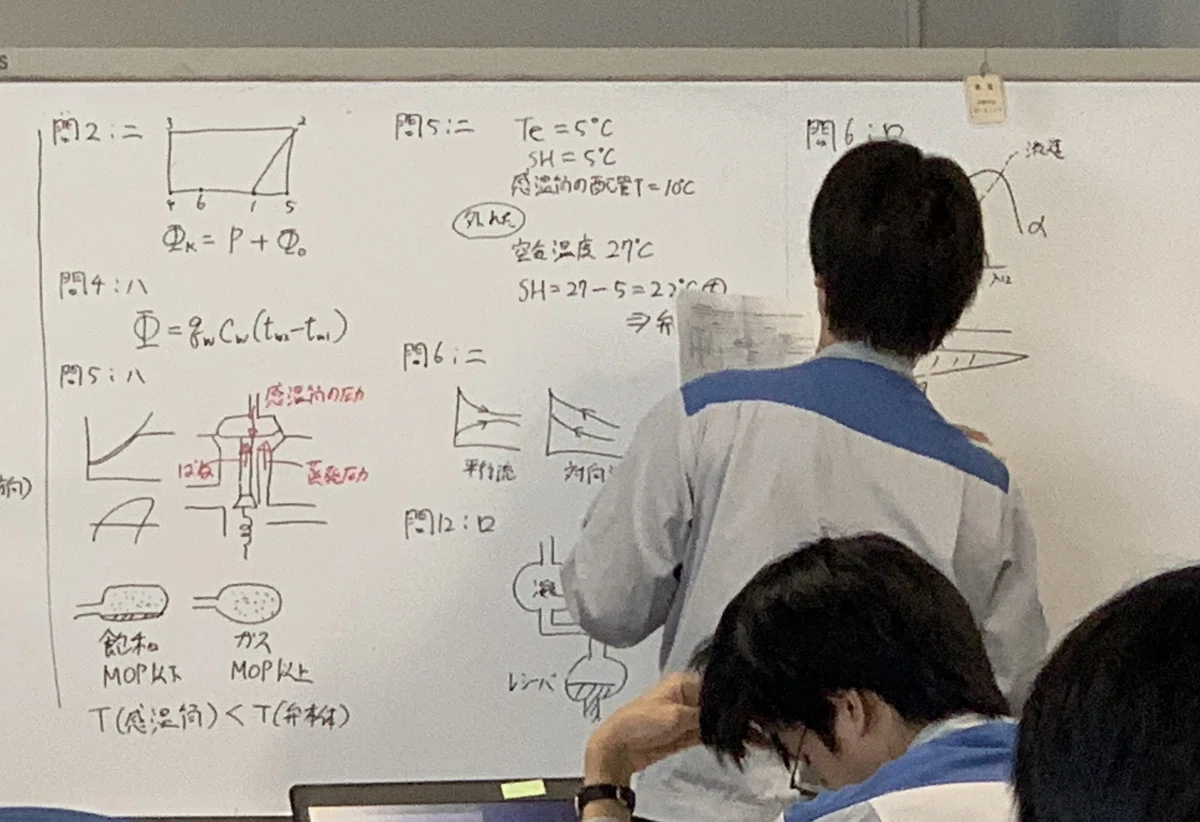 S
向)
問2:ニ
3 2
4 6 1 5
Φk = P + Φo
問4:ハ
Φ = qw Cw (tw2 - tw1)
問5:ハ
感温筒の圧力
ばね
蒸発圧力
飽和
MOP以下
ガス
MOP以上
T(感温筒) < T(弁本体)
問5:ニ
Te = 5℃
SH = 5℃
感温筒の配管T = 10℃
外れた
空台温度 27℃
SH = 27 - 5 = 22℃(大)
⇒ 弁
問6:ニ
平行流
対向
問12:ロ
凝
レシーバ
問6:ロ
流速
α